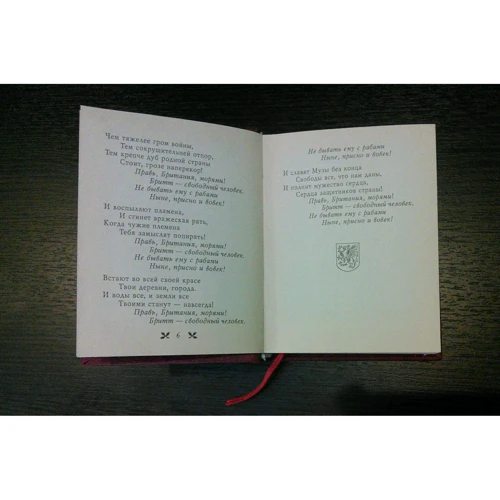 Чем тяжелее гром войны,
Тем сокрушительней отпор,
Тем крепче дуб родной страны
Стоит, грозе наперекор!
Правь, Британия, морями!
Бритт — свободный человек.
Не бывать ему с рабами
Ныне, присно и вовек!
И воспылают племена,
И сгинет вражеская рать,
Когда чужие племена
Тебя замыслят попирать!
Правь, Британия, морями!
Бритт — свободный человек.
Не бывать ему с рабами
Ныне, присно и вовек!
Встают во всей своей красе
Твои деревни, города.
И воды все, и земли все
Твоими станут — навсегда!
Правь, Британия, морями!
Бритт — свободный человек.
6
Не бывать ему с рабами
Ныне, присно и вовек!
И славят Музы без конца
Свободы все, что нам даны,
И полнит мужество сердца,
Сердца защитников страны!
Правь, Британия, морями!
Бритт — свободный человек.
Не бывать ему с рабами
Ныне, присно и вовек!